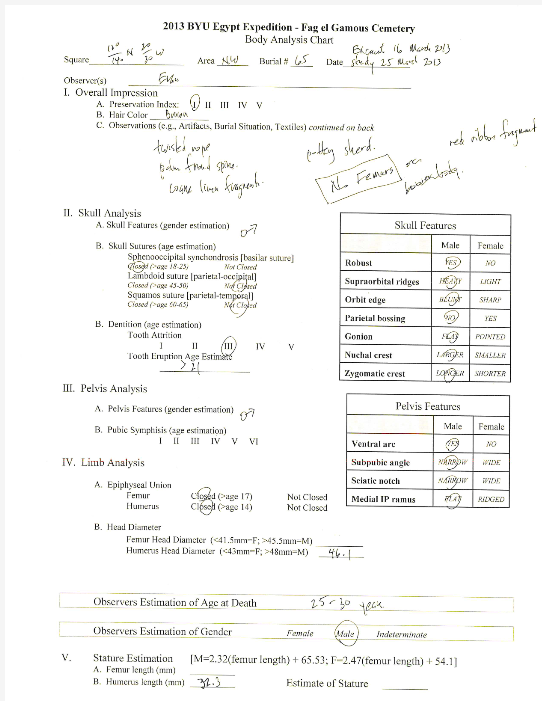 2013 BYU Egypt Expedition - Fag el Gamous Cemetery
Body Analysis Chart
Square N W Area NW Burial # 65 Date 16 March 2013
study 25 March 2013
Observer(s)
I. Overall Impression
A. Preservation Index: I II III IV V
B. Hair Color Brown
C. Observations (e.g., Artifacts, Burial Situation, Textiles) continued on back
twisted rope pottery sherd. red ribbon fragment
palm frond spine. No Femurs on
coarse linen fragments. body.
II. Skull Analysis
A. Skull Features (gender estimation) ♂
B. Skull Sutures (age estimation)
Sphenooccipital synchondrosis [basilar suture]
Closed (>age 18-25) Not Closed
Lambdoid suture [parietal-occipital]
Closed (>age 45-50) Not Closed
Squamos suture [parietal-temporal]
Closed (>age 60-65) Not Closed
B. Dentition (age estimation)
Tooth Attrition
I II III IV V
Tooth Eruption Age Estimate
> 21
Skull Features
Male Female
Robust YES NO
Supraorbital ridges HEAVY LIGHT
Orbit edge BLUNT SHARP
Parietal bossing NO YES
Gonion FLAT POINTED
Nuchal crest LARGER SMALLER
Zygomatic crest LONGER SHORTER
III. Pelvis Analysis
A. Pelvis Features (gender estimation) ♂
B. Pubic Symphisis (age estimation)
I II III IV V VI
Pelvis Features
Male Female
Ventral arc YES NO
Subpubic angle NARROW WIDE
Sciatic notch NARROW WIDE
Medial IP ramus FLAT RIDGED
IV. Limb Analysis
A. Epiphyseal Union
Femur Closed (>age 17) Not Closed
Humerus Closed (>age 14) Not Closed
B. Head Diameter
Femur Head Diameter (<41.5mm=F; >45.5mm=M)
Humerus Head Diameter (<43mm=F; >48mm=M) 46.1
Observers Estimation of Age at Death 25-30 year
Observers Estimation of Gender Female Male Indeterminate
V. Stature Estimation [M=2.32(femur length) + 65.53; F=2.47(femur length) + 54.1]
A. Femur length (mm)
B. Humerus length (mm) 32.3 Estimate of Stature